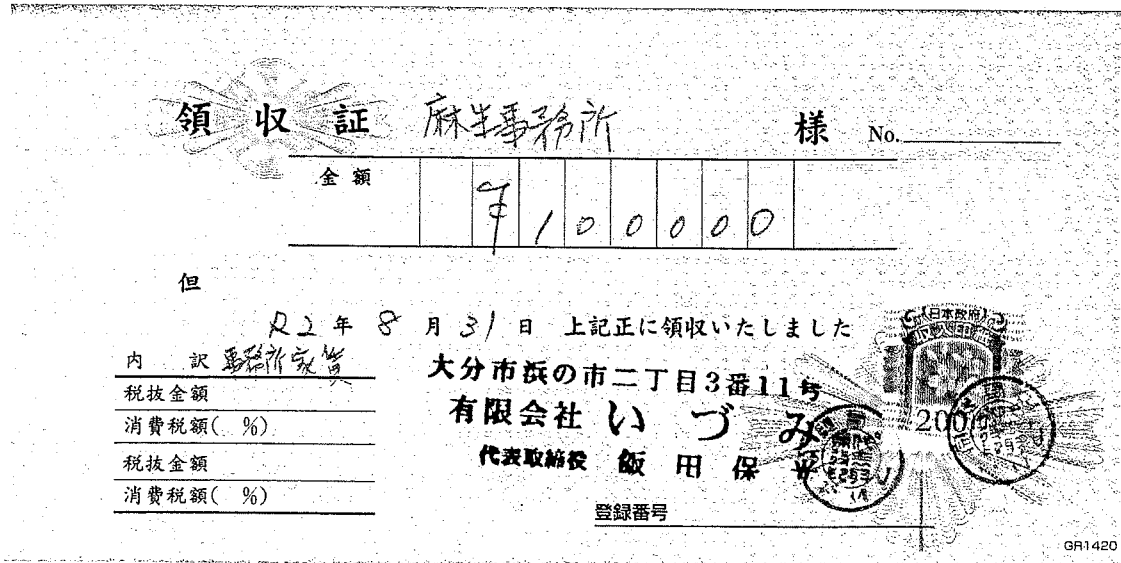 領収証 麻生事務所 様 No.
金額 ¥100000
但
R2年8月31日 上記正に領収いたしました
内訳 事務所家賃
税抜金額
消費税額( %)
税抜金額
消費税額( %)
大分市浜の市二丁目3番11号
有限会社 いづみ
代表取締役 飯田保
登録番号
日本政府
200
GR1420